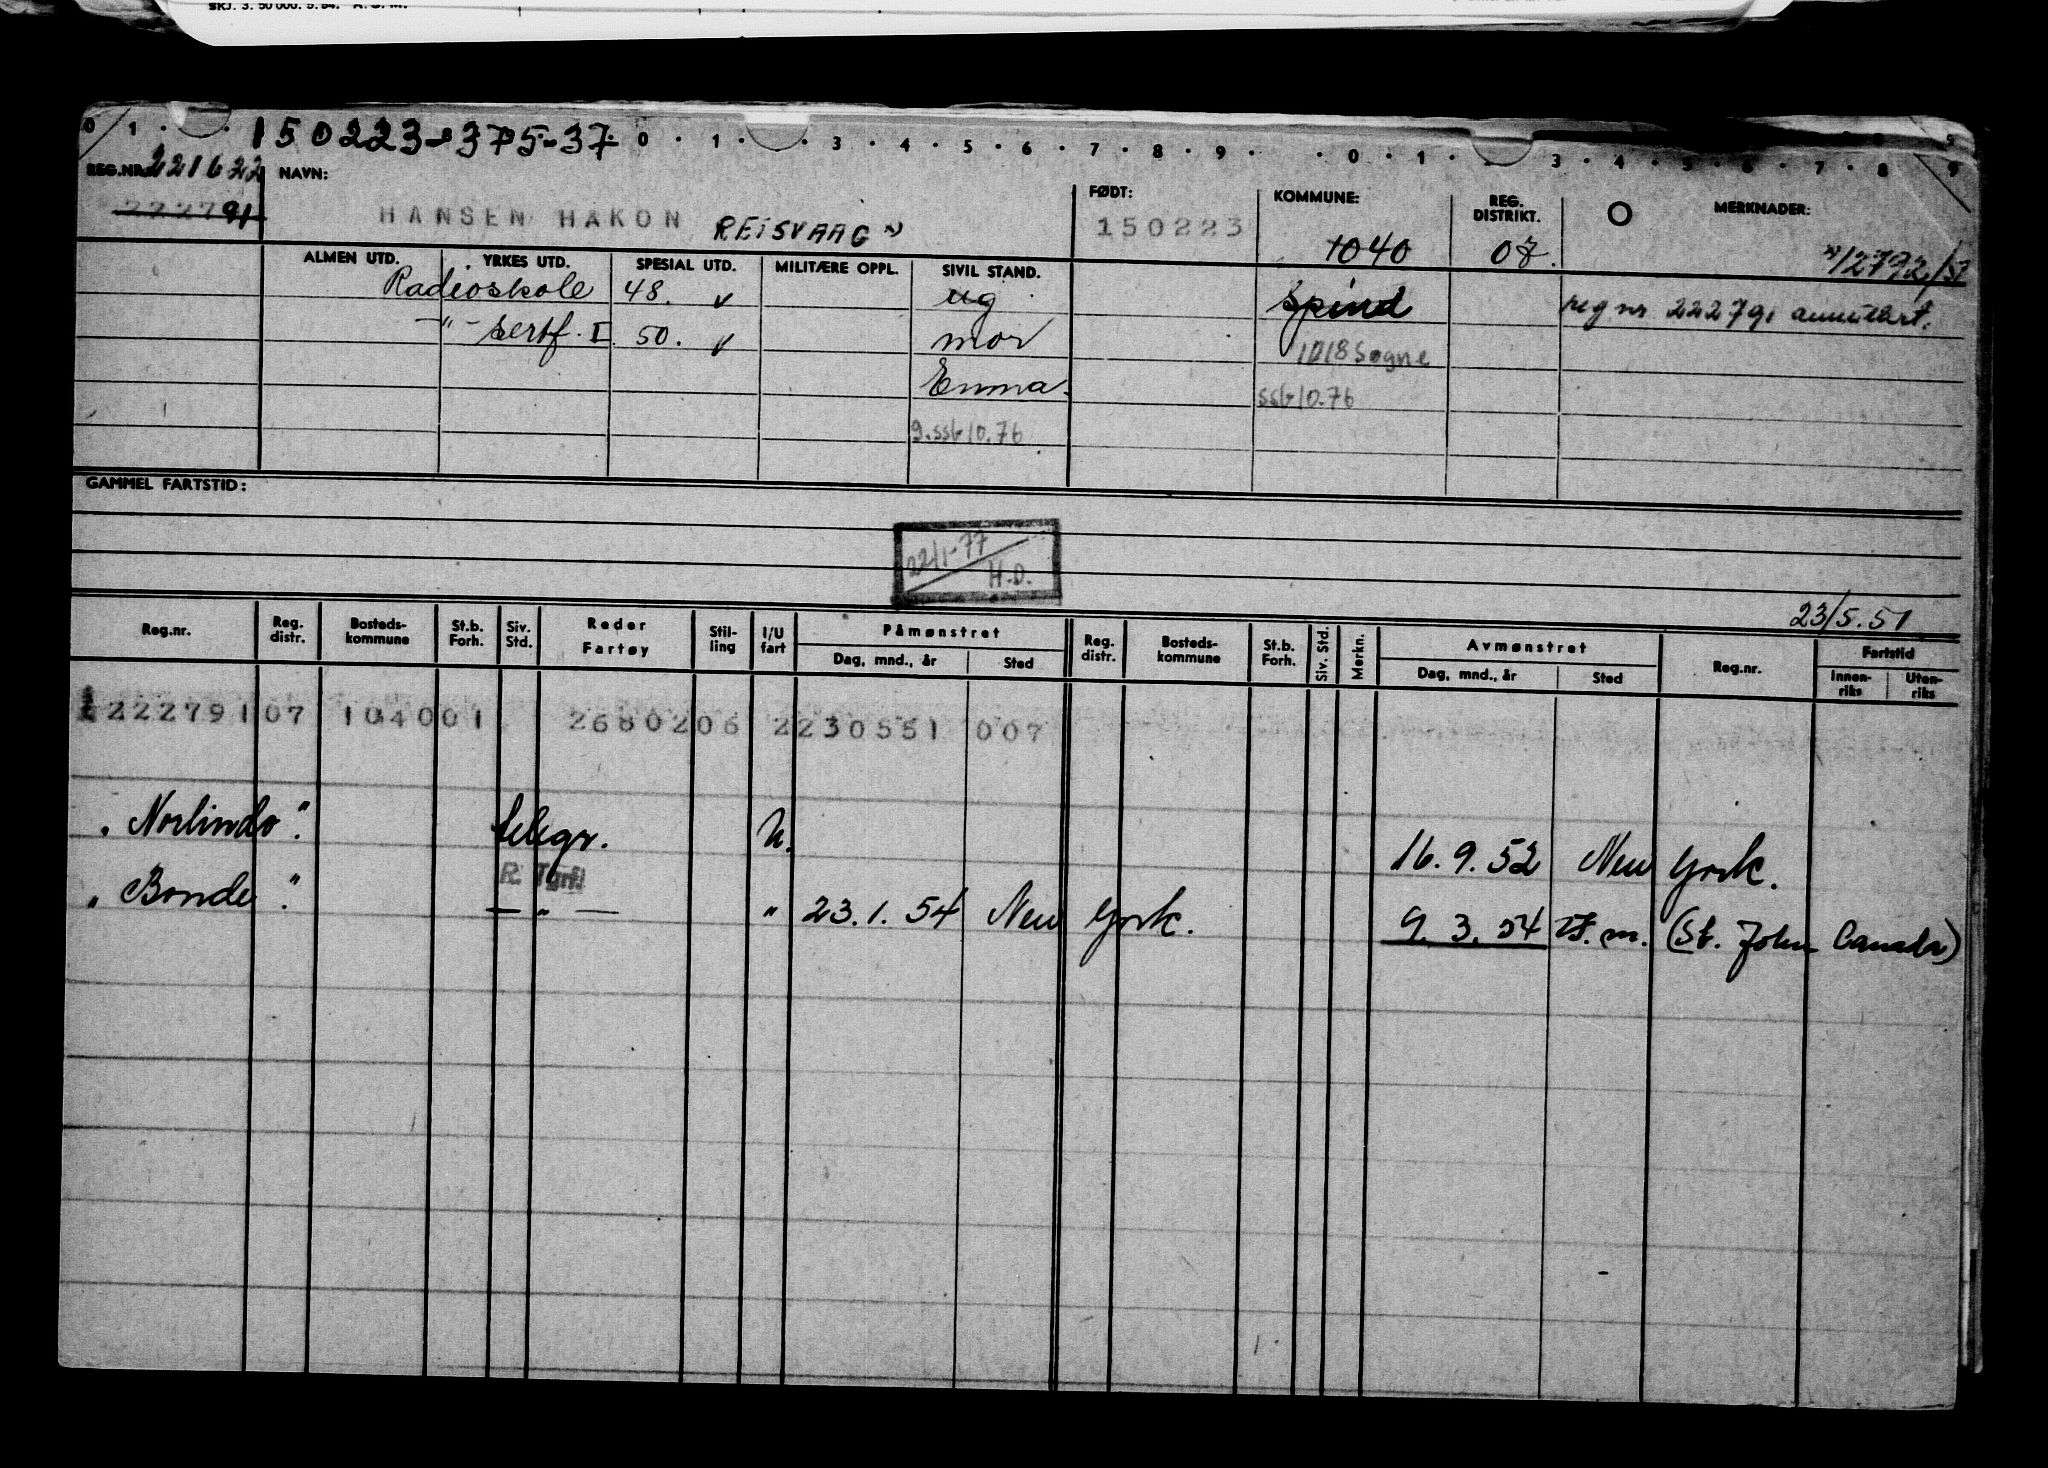 SKJ. 3. 50 000. 5. 54. A. S. M.
0 1 150223-375-37 0 . 1 . . 3 . 4 . 5 . 6 . 7 . 8 . 9 . . 0 . 1 . . 3 . 4 . 5 . 6 . 7 . 8 . 9
REG.NR. 221622 NAVN: FØDT: KOMMUNE: REG. DISTRIKT. O MERKNADER:
222791 HANSEN HAKON REISVAAG 150223 1040 07. 12792/51
ALMEN UTD. YRKES UTD. SPESIAL UTD. MILITÆRE OPPL. SIVIL STAND.
Radioskole 48. v ug Spind reg nr 222791 annullert.
-"- sertf. I 50. v mor 1018 Søgne
Emma. ssb 10.76
g. ssb 10.76
GAMMEL FARTSTID:
22/1-77
H.D.
23/5.51
Reg.nr. Reg. distr. Bosteds-kommune St.b. Forh. Siv. Std. Reder Fartøy Stil-ling I/U fart Påmønstret Dag, mnd., år Sted Reg. distr. Bosteds-kommune St.b. Forh. Siv. Std. Merkn. Avmønstret Dag, mnd., år Sted Reg.nr. Fartstid Innen-riks Uten-riks
222791 07 1040 01 2680206 2230551 007
"Norlindo". telegr. U. 16.9.52 New York.
R. Tgrf.
"Bonde". — " — " 23.1.54 New York. 9.3.54 (St. John Canada)